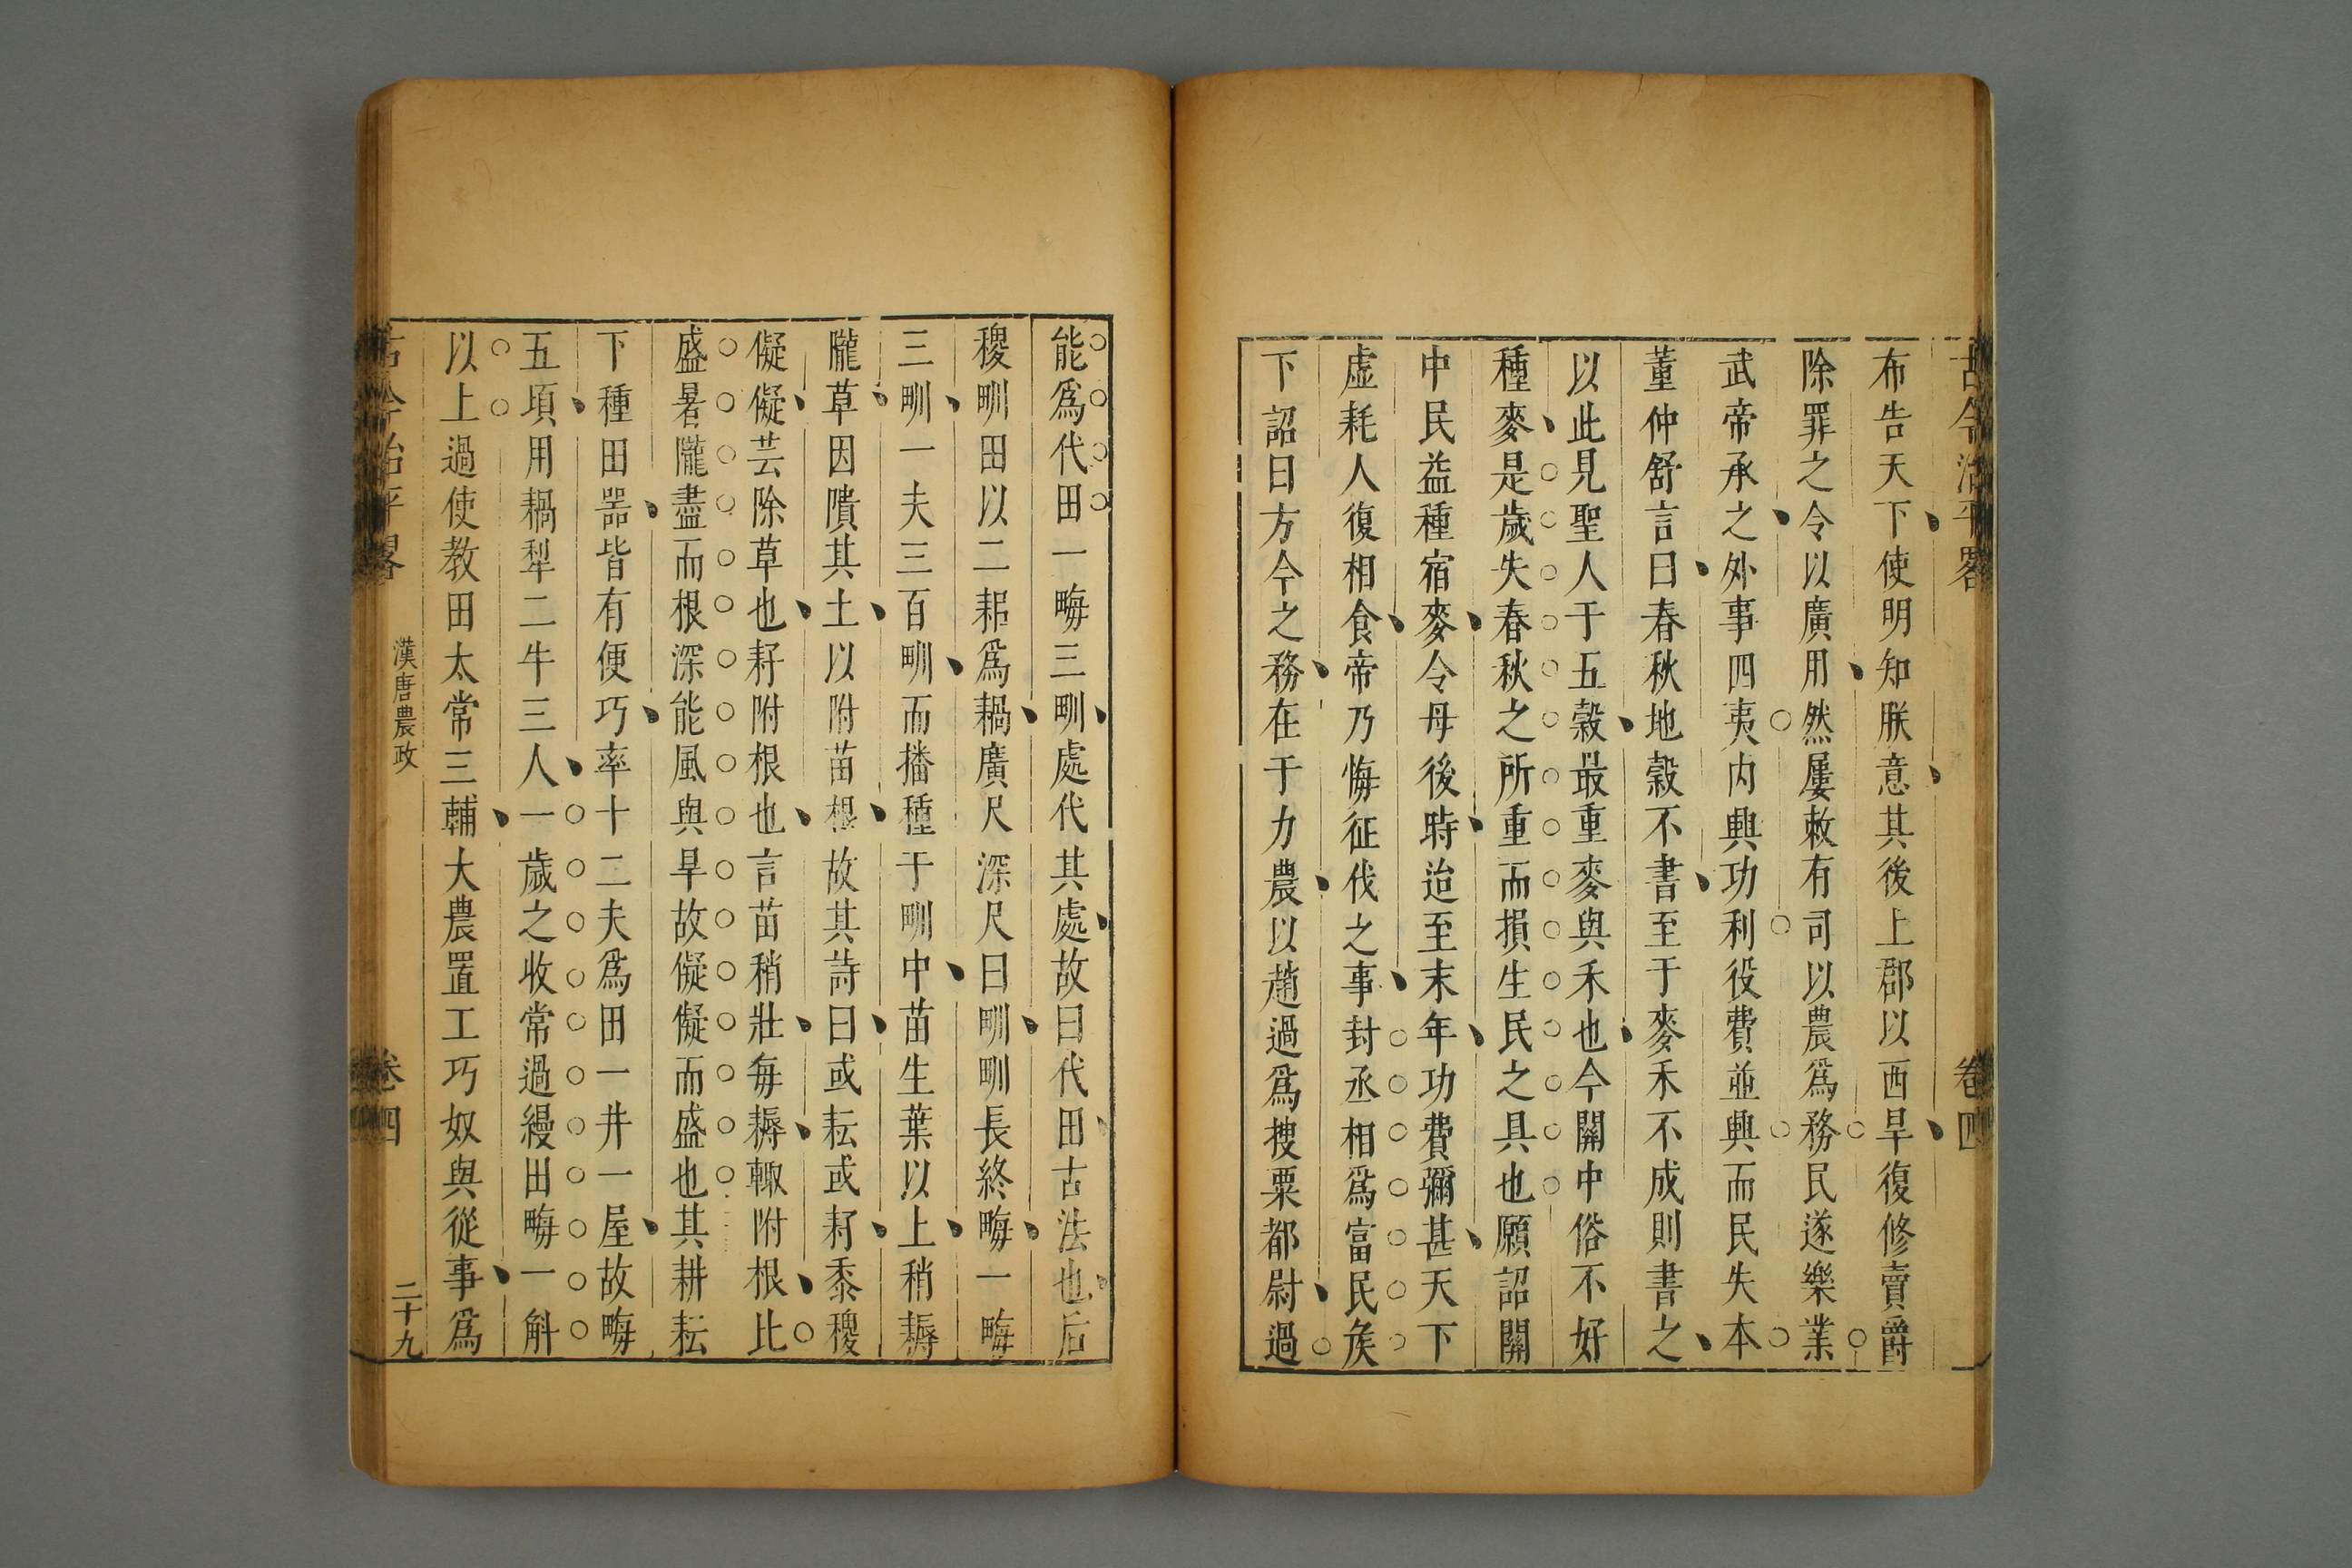 古今治平畧
卷四
布告天下使明知朕意其後上郡以西旱復修賣爵
除罪之令以廣用然屢敕有司以農爲務民遂樂業
武帝承之外事四夷内興功利役費並興而民失本
董仲舒言曰春秋地穀不書至于麥禾不成則書之
以此見聖人于五穀最重麥與禾也今關中俗不好
種麥是歲失春秋之所重而損生民之具也願詔關
中民益種宿麥令毋後時迨至末年功費彌甚天下
虛耗人復相食帝乃悔征伐之事封丞相爲富民矦
下詔曰方今之務在于力農以趙過爲搜粟都尉過
能爲代田一畮三甽處代其處故曰代田古法也后
稷甽田以二耜爲耦廣尺深尺曰甽甽長終畮一畮
三甽一夫三百甽而播種于甽中苗生葉以上稍耨
隴草因隤其土以附苗根故其詩曰或耘或耔黍稷
儗儗芸除草也耔附根也言苗稍壯每耨輙附根比
盛暑隴盡而根深能風與旱故儗儗而盛也其耕耘
下種田噐皆有便巧率十二夫爲田一井一屋故畮
五頃用耦犁二牛三人一歲之收常過縵田畮一斛
以上過使教田太常三輔大農置工巧奴與從事爲
古今治平畧
漢唐農政
卷四
二十九